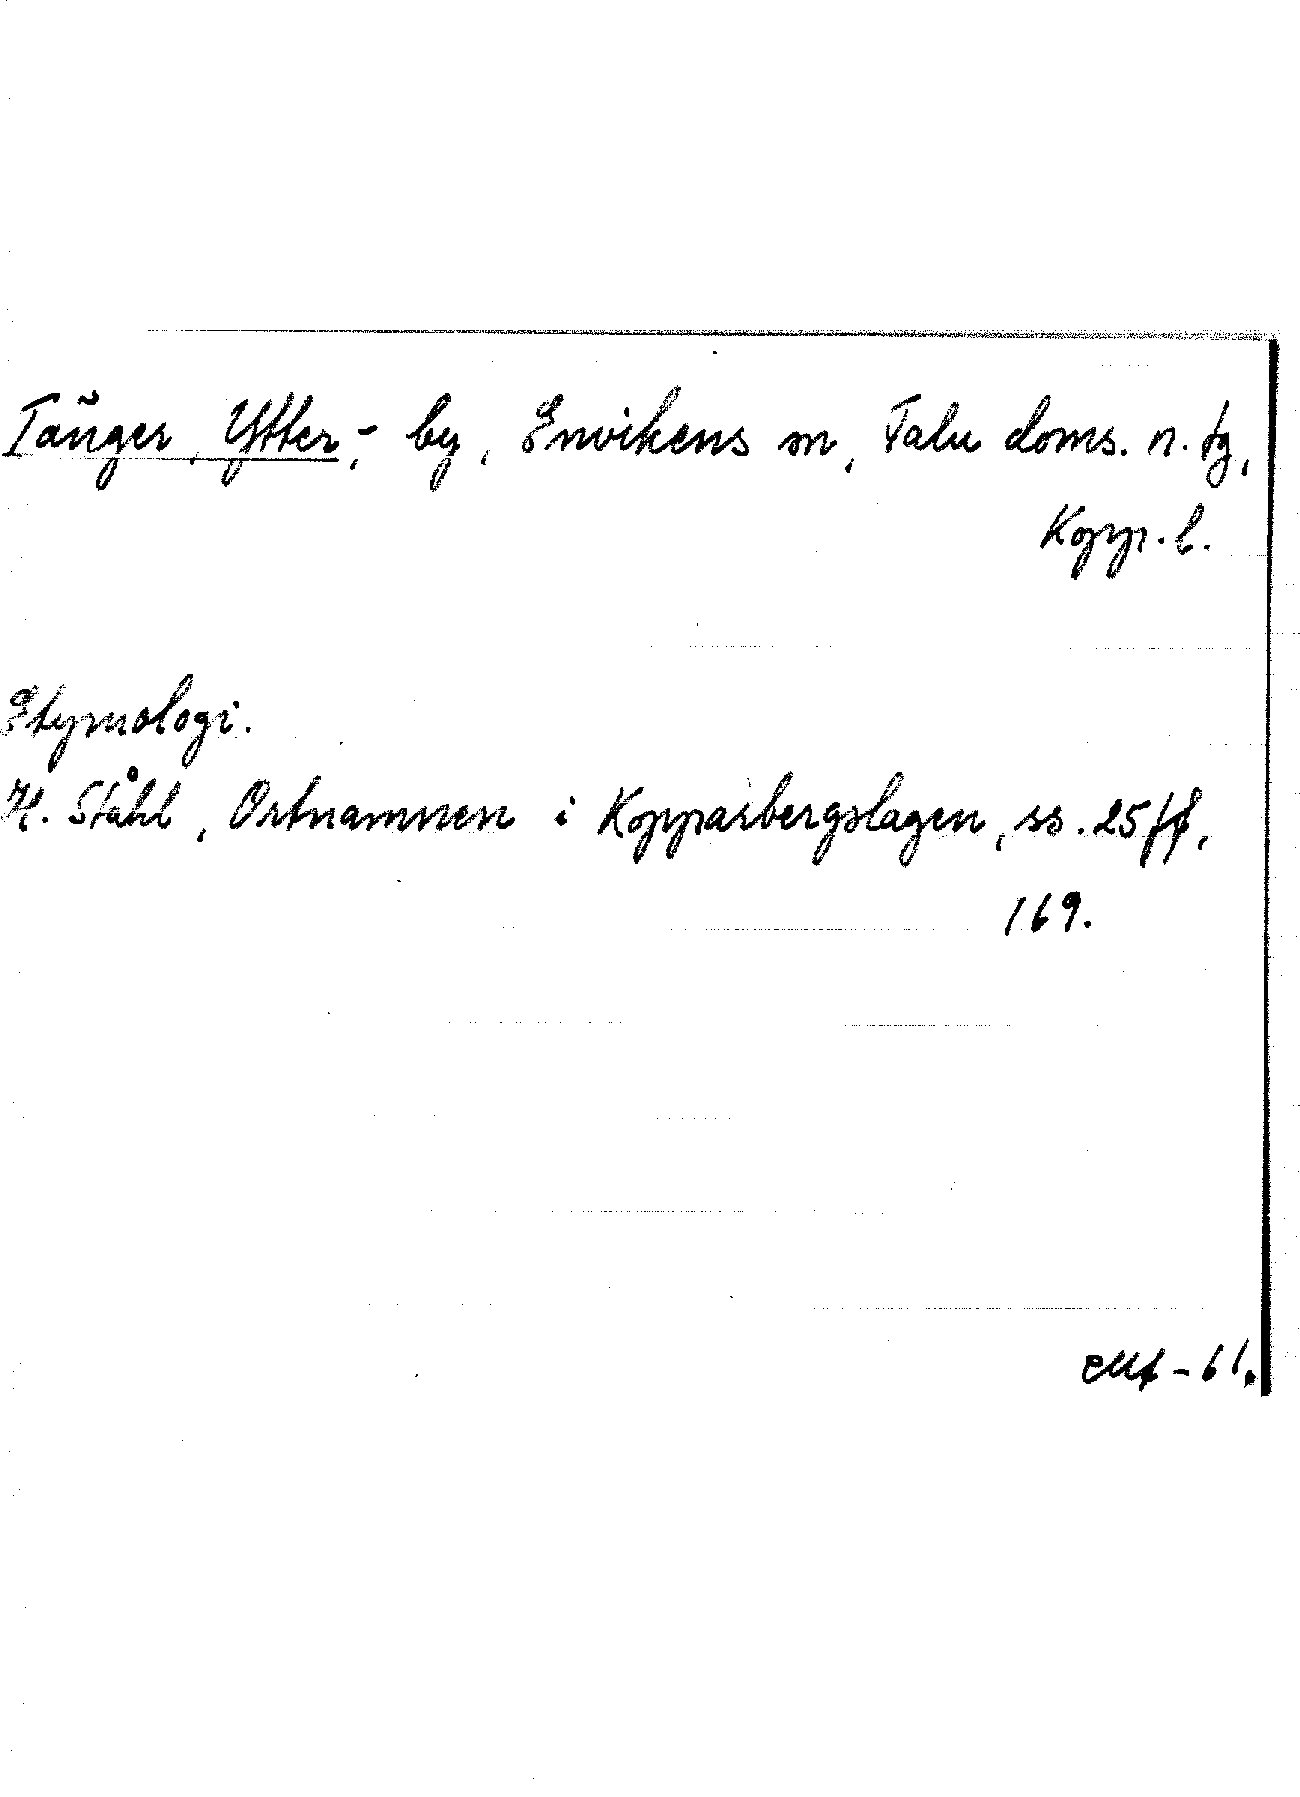 Tänger, Ytter,- by, Envikens sn, Falu doms. n. tg,
Kopp. l.
Etymologi.
H. Ståhl, Ortnamnen i Kopparbergslagen, ss. 25 ff,
169.
-61.